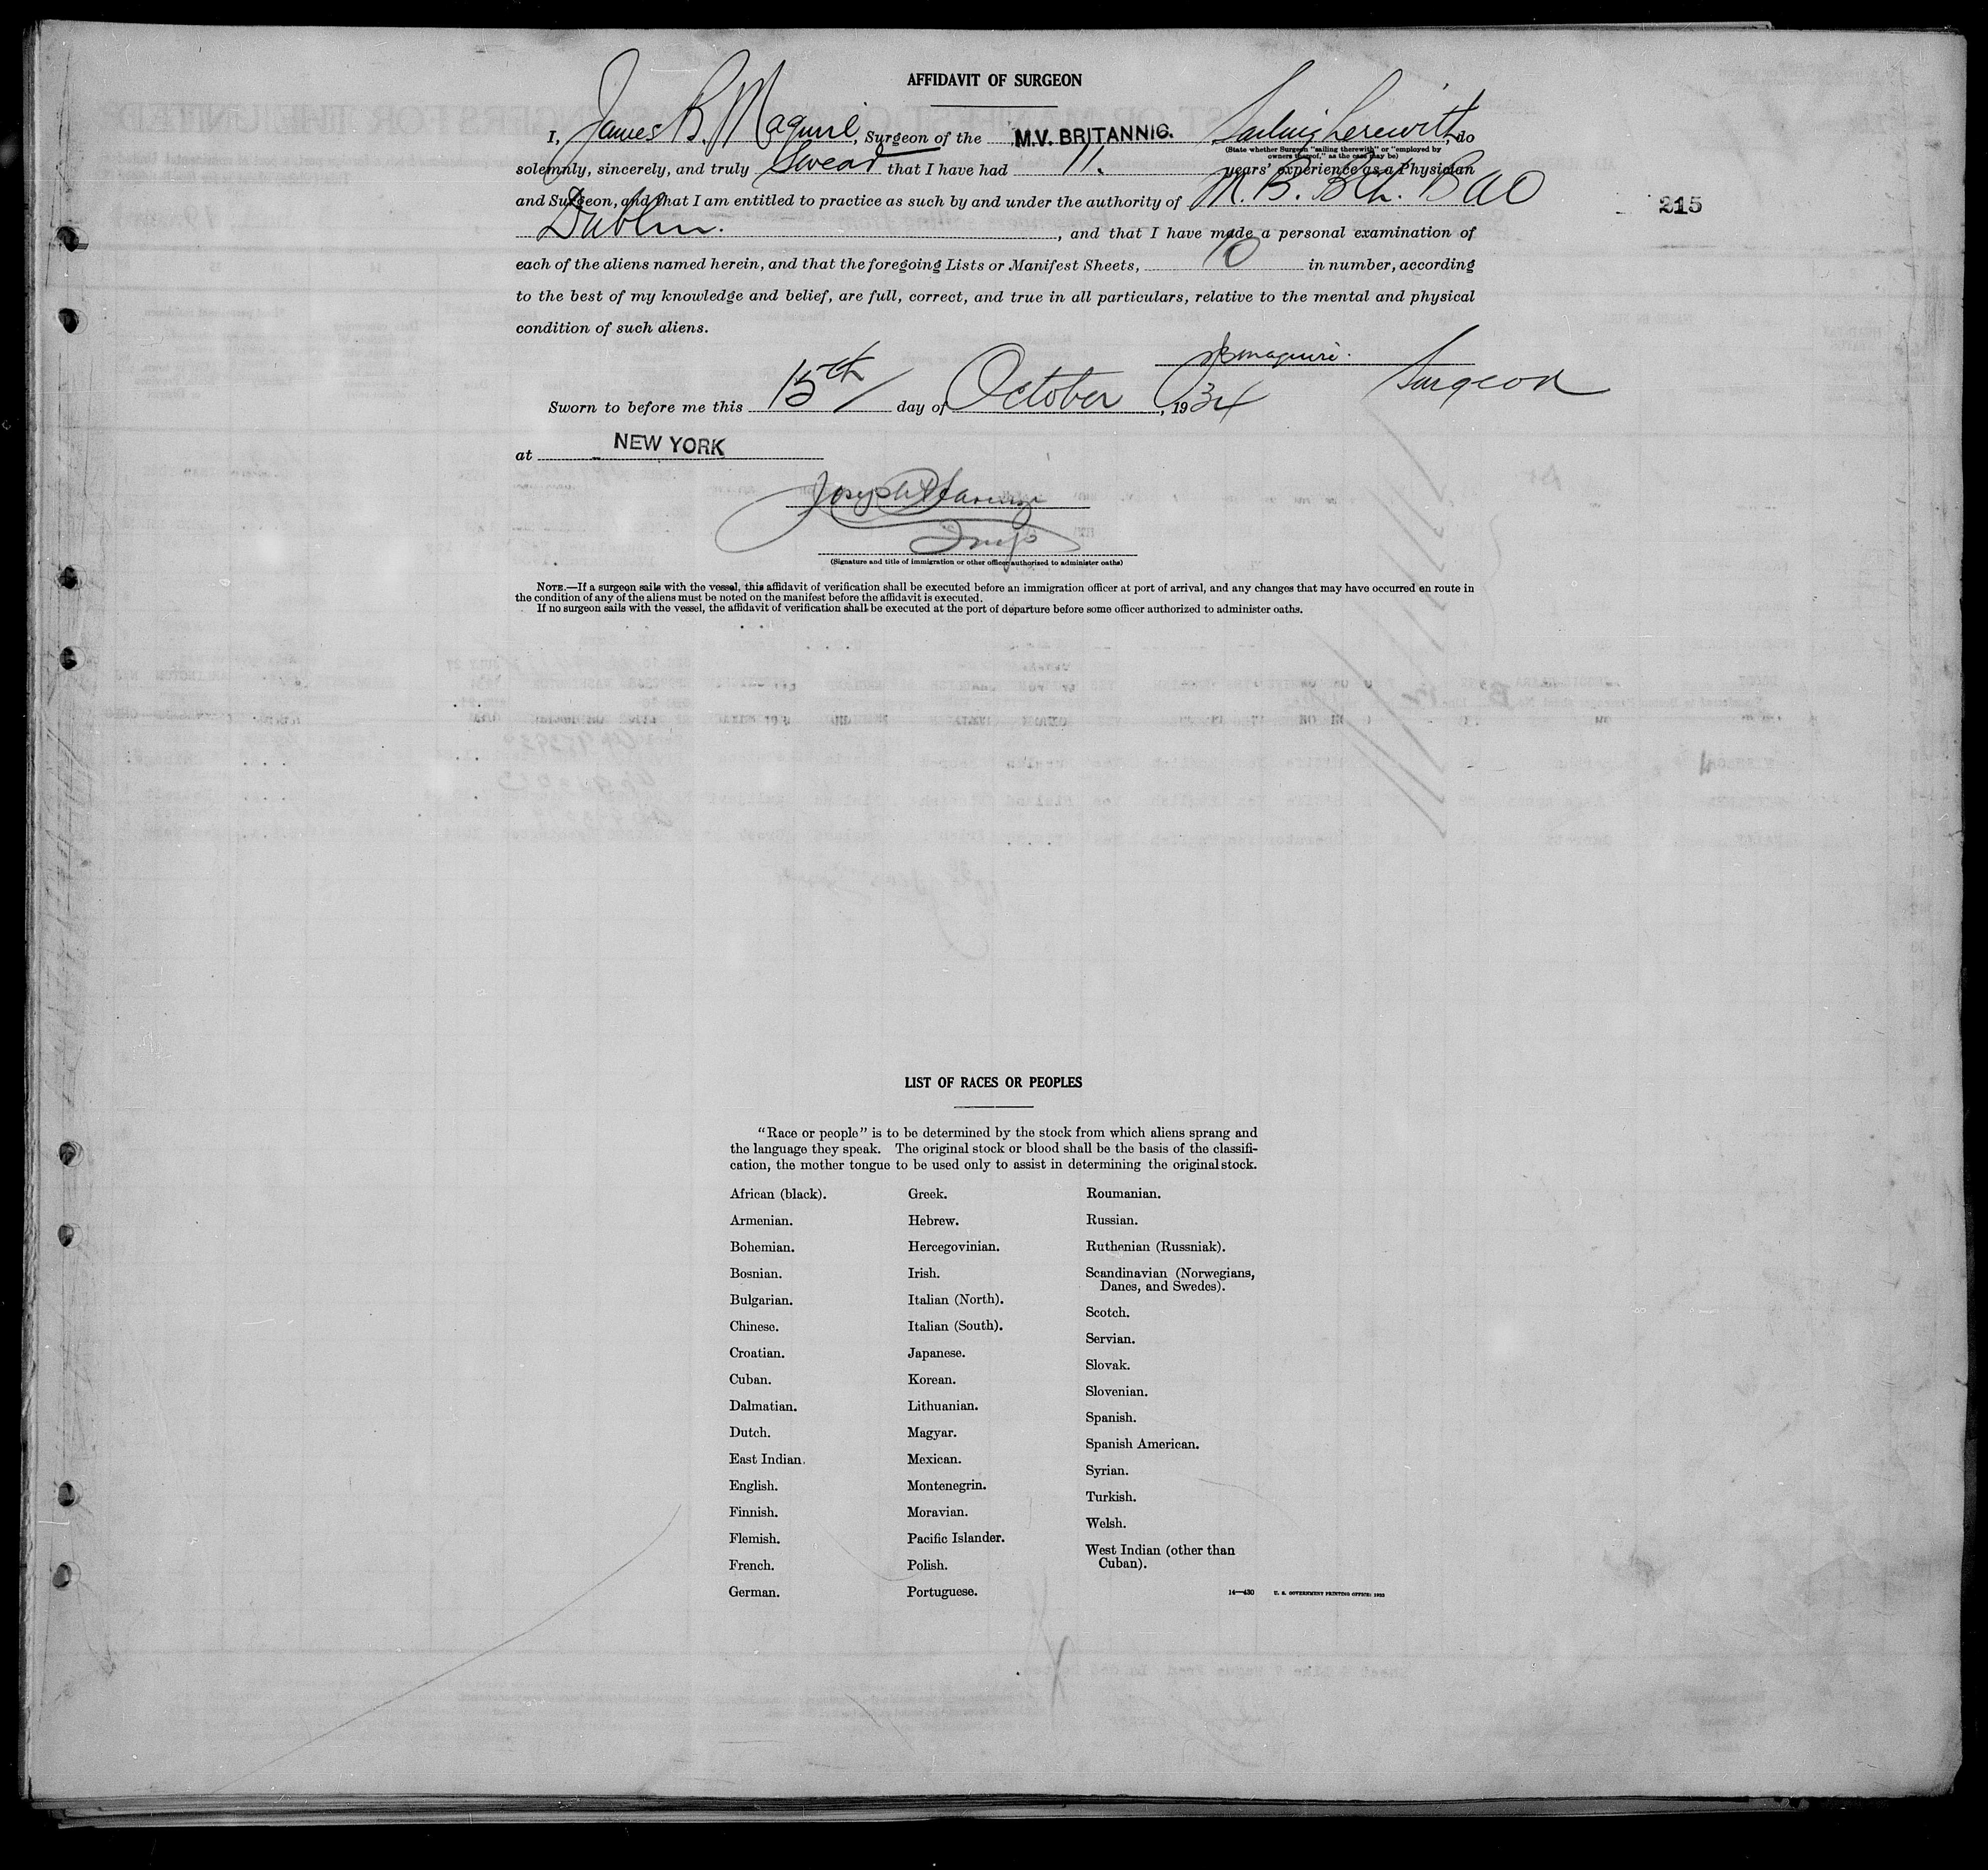 AFFIDAVIT OF SURGEON
I, James B. Maguire, Surgeon of the M.V. BRITANNIC. Sailing therewith, do
(State whether Surgeon "sailing therewith" or "employed by
owners thereof," as the case may be)
solemnly, sincerely, and truly Swear that I have had 11. years' experience as a Physician
and Surgeon, and that I am entitled to practice as such by and under the authority of M.B. BCh. BAO
215
Dublin. , and that I have made a personal examination of
each of the aliens named herein, and that the foregoing Lists or Manifest Sheets, 10 in number, according
to the best of my knowledge and belief, are full, correct, and true in all particulars, relative to the mental and physical
condition of such aliens.
JBMaguire.
Surgeon
Sworn to before me this 15th day of October, 1934
at NEW YORK
Insp
(Signature and title of immigration or other officer authorized to administer oaths)
NOTE.—If a surgeon sails with the vessel, this affidavit of verification shall be executed before an immigration officer at port of arrival, and any changes that may have occurred en route in
the condition of any of the aliens must be noted on the manifest before the affidavit is executed.
If no surgeon sails with the vessel, the affidavit of verification shall be executed at the port of departure before some officer authorized to administer oaths.
LIST OF RACES OR PEOPLES
"Race or people" is to be determined by the stock from which aliens sprang and
the language they speak. The original stock or blood shall be the basis of the classifi-
cation, the mother tongue to be used only to assist in determining the original stock.
African (black).
Armenian.
Bohemian.
Bosnian.
Bulgarian.
Chinese.
Croatian.
Cuban.
Dalmatian.
Dutch.
East Indian.
English.
Finnish.
Flemish.
French.
German.
Greek.
Hebrew.
Hercegovinian.
Irish.
Italian (North).
Italian (South).
Japanese.
Korean.
Lithuanian.
Magyar.
Mexican.
Montenegrin.
Moravian.
Pacific Islander.
Polish.
Portuguese.
Roumanian.
Russian.
Ruthenian (Russniak).
Scandinavian (Norwegians,
Danes, and Swedes).
Scotch.
Servian.
Slovak.
Slovenian.
Spanish.
Spanish American.
Syrian.
Turkish.
Welsh.
West Indian (other than
Cuban).
14—430 U. S. GOVERNMENT PRINTING OFFICE: 1933